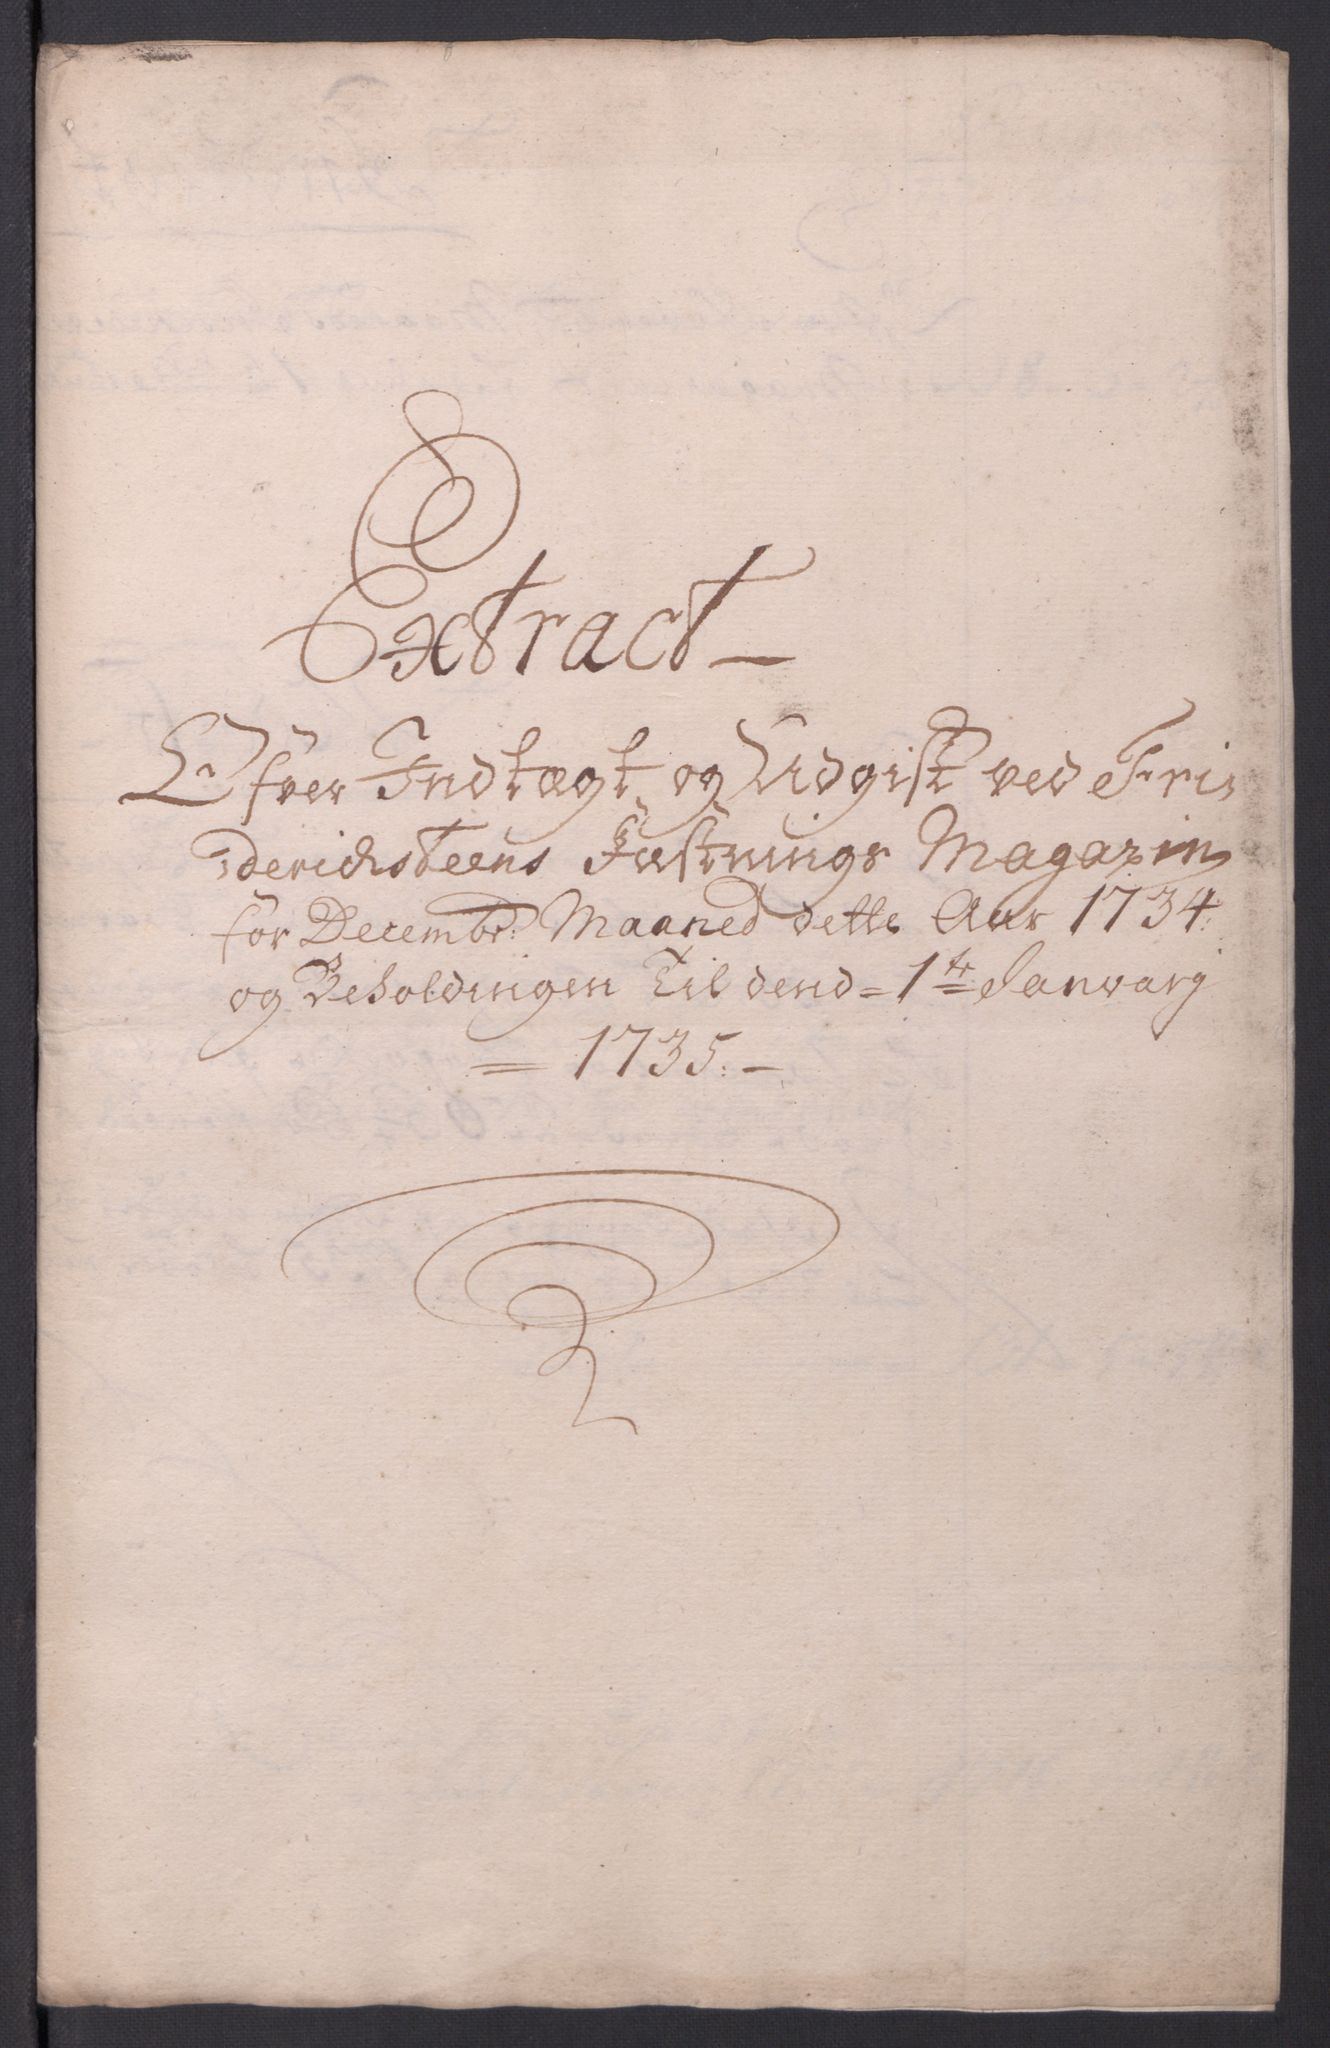 Extract –
Ofver Indtægt og Udgift ved Fri-
:derichsteens Fæstnings Magazin
for Decembr: Maaned dette Aar 1734.
og Beholdingen Til dend = 1te Janvarij
= 1735. –